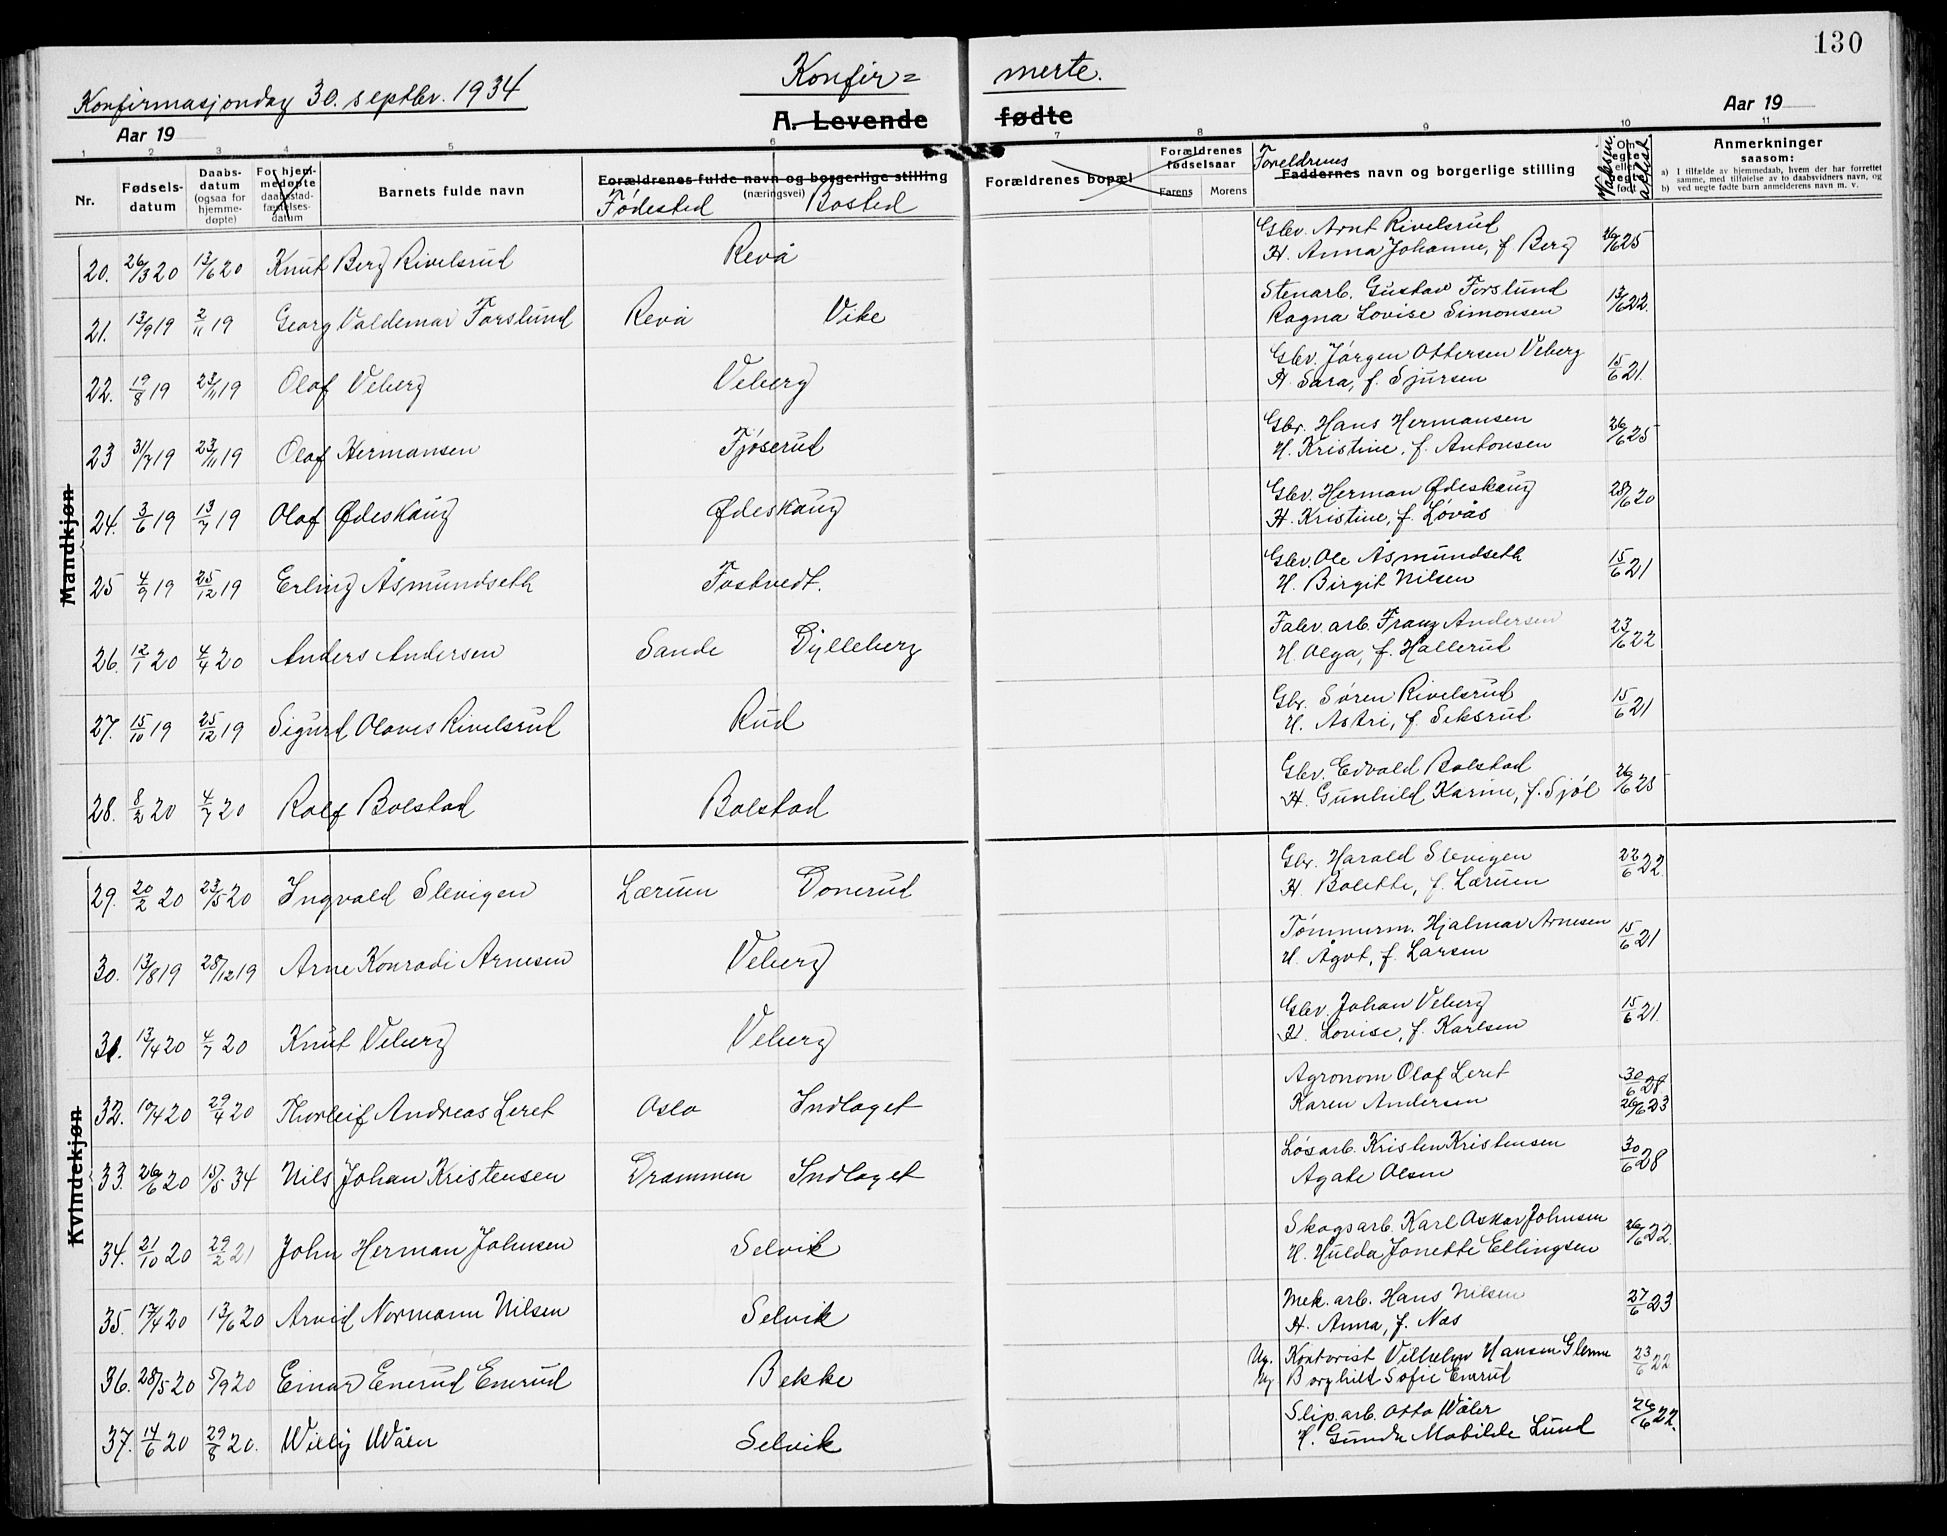 130
Konfir= merte.
Konfirmasjonsdag 30. septbr. 1934
A. Levende fødte
Aar 19
Aar 19
1 2 3 4 5 6 7 8 9 10 11
Nr.
Fødsels-datum
Daabs-datum (ogsaa for hjemme-døpte)
For hjem-medøpte daabsstad-fæstelses-datum
Barnets fulde navn
Forældrenes fulde navn og borgerlige stilling (næringsvei)
Fødested Bosted
Forældrenes bopæl
Forældrenes fødselsaar
Farens Morens
Foreldrenes
Faddernes navn og borgerlige stilling
Om egte eller uegte født
Vaksin. attest
Anmerkninger
saasom:
a) I tilfælde av hjemmedaab, hvem der har forrettet samme, med tilføielse av to daabsvidners navn, og
b) ved uegte fødte barn anmelderens navn m. v.
Mandkjøn
20. 26/3 20 13/6 20 Knut Berg Rivelsrud Revå Gbr. Arnt Rivelsrud 26/6 25
H. Anna Johanne, f. Berg
21. 13/9 19 2/11 19 Georg Valdemar Forslund Revå Vike Stenarb. Gustav Forslund 13/6 22.
Ragna Lovise Simonsen
22. 19/8 19 23/11 19 Olaf Veberg Veberg Gbr. Jørgen Ottersen Veberg 15/6 21.
H. Sara, f. Sjursen
23 31/7 19 23/11 19 Olaf Hermansen Fjøserud Gbr. Hans Hermansen 26/6 25
H. Kristine, f. Antonsen
24. 3/6 19 13/7 19 Olaf Ødeskaug Ødeskaug Gbr. Herman Ødeskaug 28/6 20
H. Kristine, f. Løvås
25 4/9 19 25/12 19 Erling Åsmundseth Fostvedt. Gbr. Ole Åsmundseth 15/6 21
H. Birgit Nilsen
26. 12/1 20 4/4 20 Anders Andersen Sande Dylleberg Fabr. arb. Franz Andersen 23/6 22
H. Olga, f. Hallerud
27. 15/10 19 25/12 19 Sigurd Olaves Rivelsrud Rud Gbr. Søren Rivelsrud 15/6 21
H. Astri, f. Seksrud
28. 8/2 20 4/7 20 Rolf Bolstad Bolstad Gbr. Edvald Bolstad 26/6 25
H. Gunhild Karine, f. Sjøl
Kvindekjøn
29. 20/2 20 23/5 20 Ingvald Slevigen Lærum Donerud Gbr. Harald Slevigen 22/6 22.
H. Bolette, f. Lærum
30. 13/8 19 28/12 19 Arne Konradi Arnesen Veberg Tømmerm. Hjalmar Arnesen 15/6 21
H. Ågot, f. Larsen
31. 13/4 20 4/7 20 Knut Veberg Veberg Gbr. Johan Veberg 15/6 21.
H. Lovise, f. Karlsen
32. 10/4 20 29/4 20 Thorleif Andreas Leret Oslo Indlaget Agronom Olaf Leret 30/6 28
Karen Andersen 26/6 23
33. 26/6 20 15/5 34 Nils Johan Kristensen Drammen Indlaget Løsarb. Kristen Kristensen 30/6 28
Agate Olsen
34. 21/10 20 29/2 21 John Herman Johnsen Selvik Skogsarb. Karl Oskar Johnsen 26/6 22.
H. Hulda Jonette Ellingsen
35. 17/4 20 13/6 20 Arvid Normann Nilsen Selvik Mek. arb. Hans Nilsen 27/6 23
H. Anna, f. Nas
36. 28/5 20 5/9 20 Einar Enerud Enerud Bekke Ug. Kontorist Vilhelm Hansen Glenne 23/6 22
Ug Borghild Sofie Enerud
37. 14/6 20 29/8 20. Willy Wåler Selvik Slip. arb. Otto Wåler 26/6 22.
H. Gunda Mobilde Lund